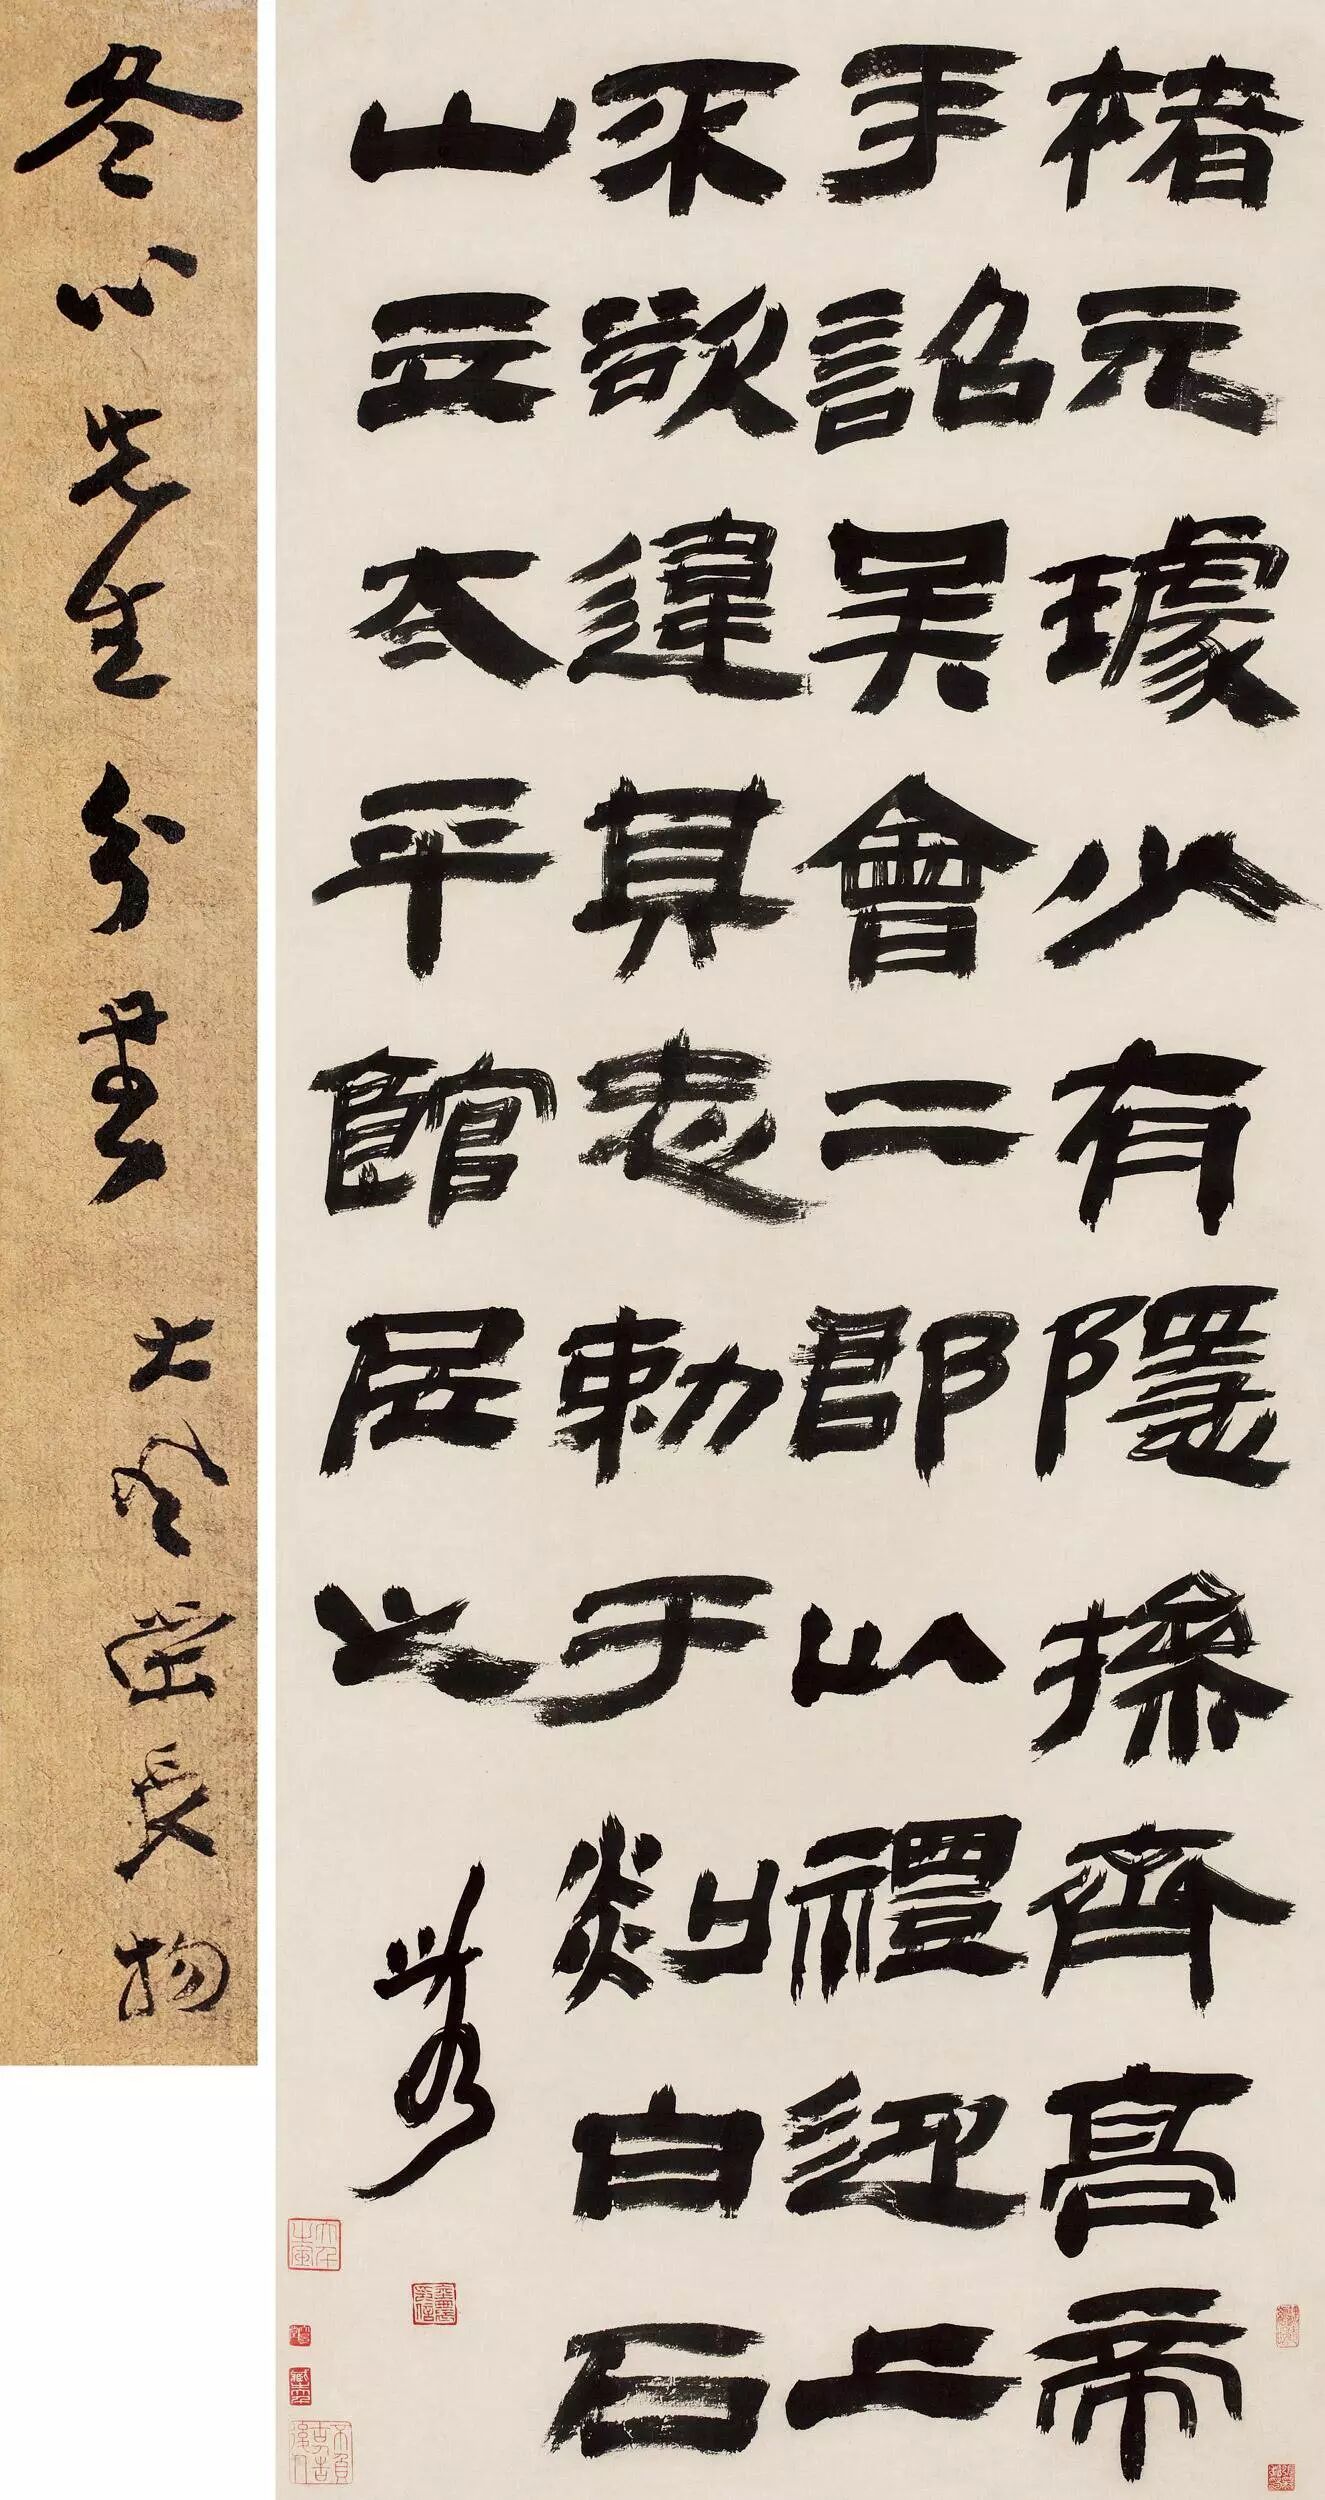 楮元璩少有隱操齊高帝
手詔吳會二郡以禮迎上
不欲違其志勅于剡白石
山立太平館居之
農
冬心先生分書
大風堂長物